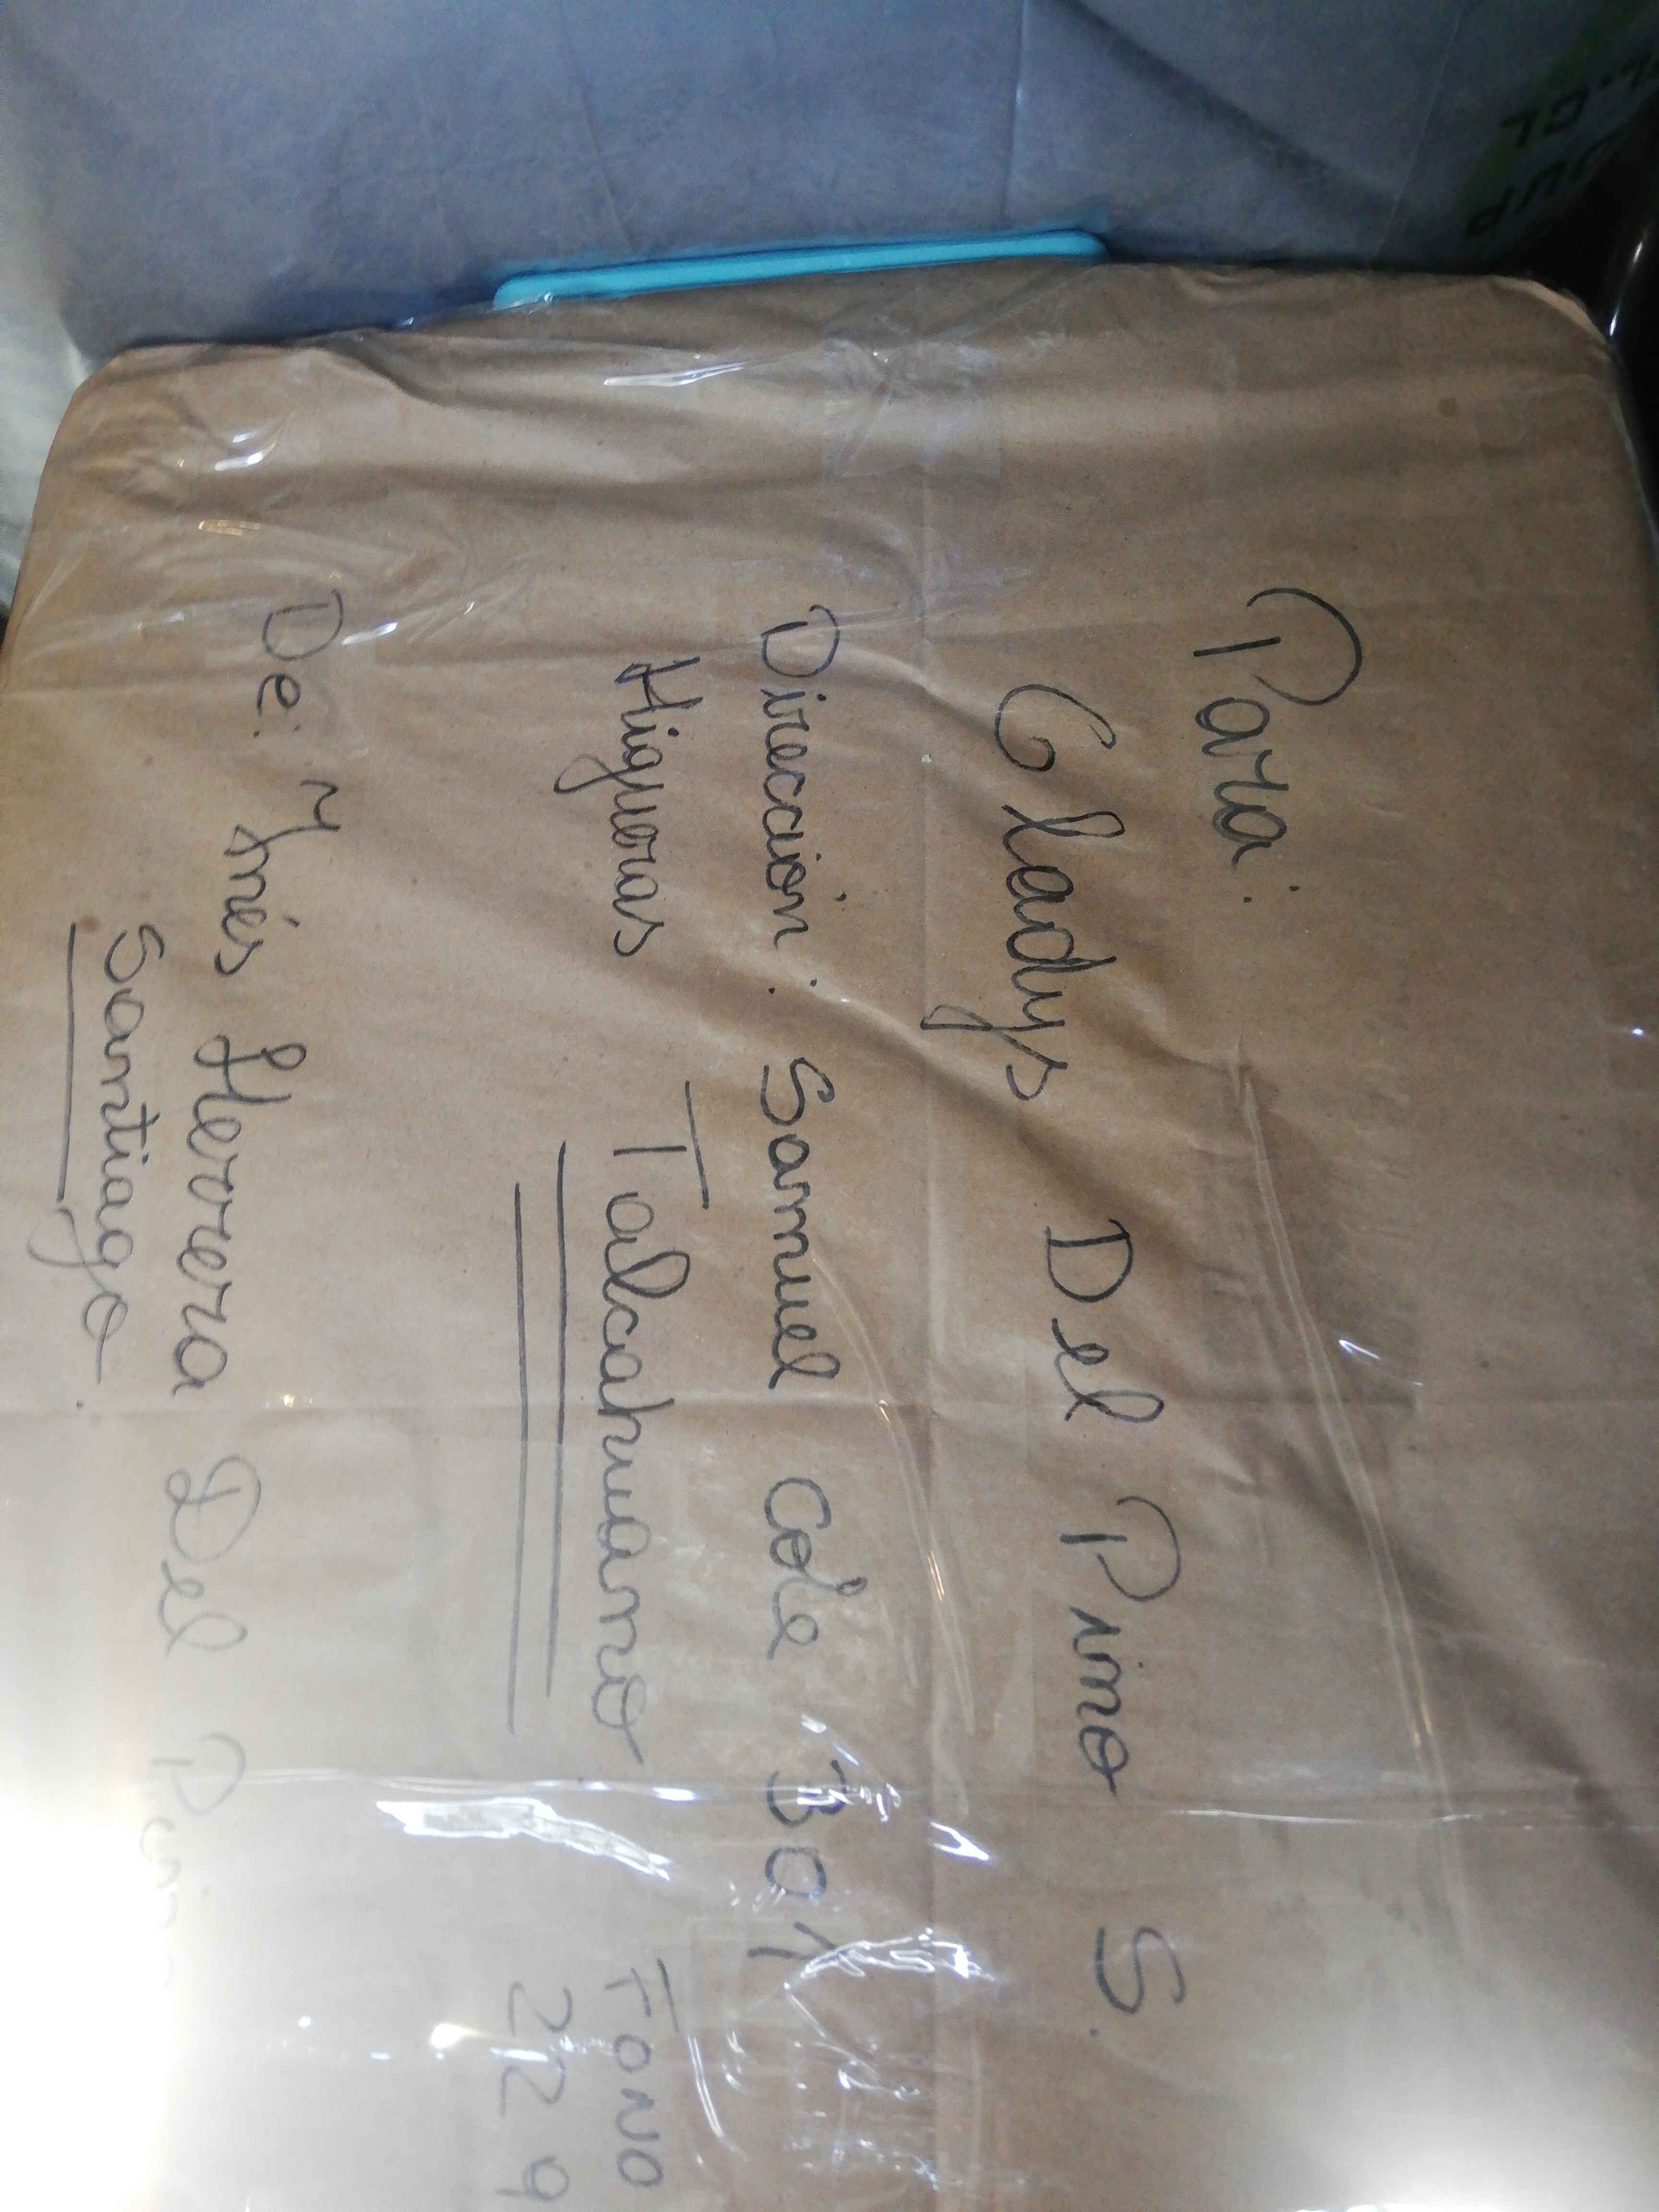 Para:
Gladys Del Pino S
Dirección: Samuel Cole 301
Higueras Talcahuano
Fono
229
De: Ynés Herrera Del Pino
Santiago.